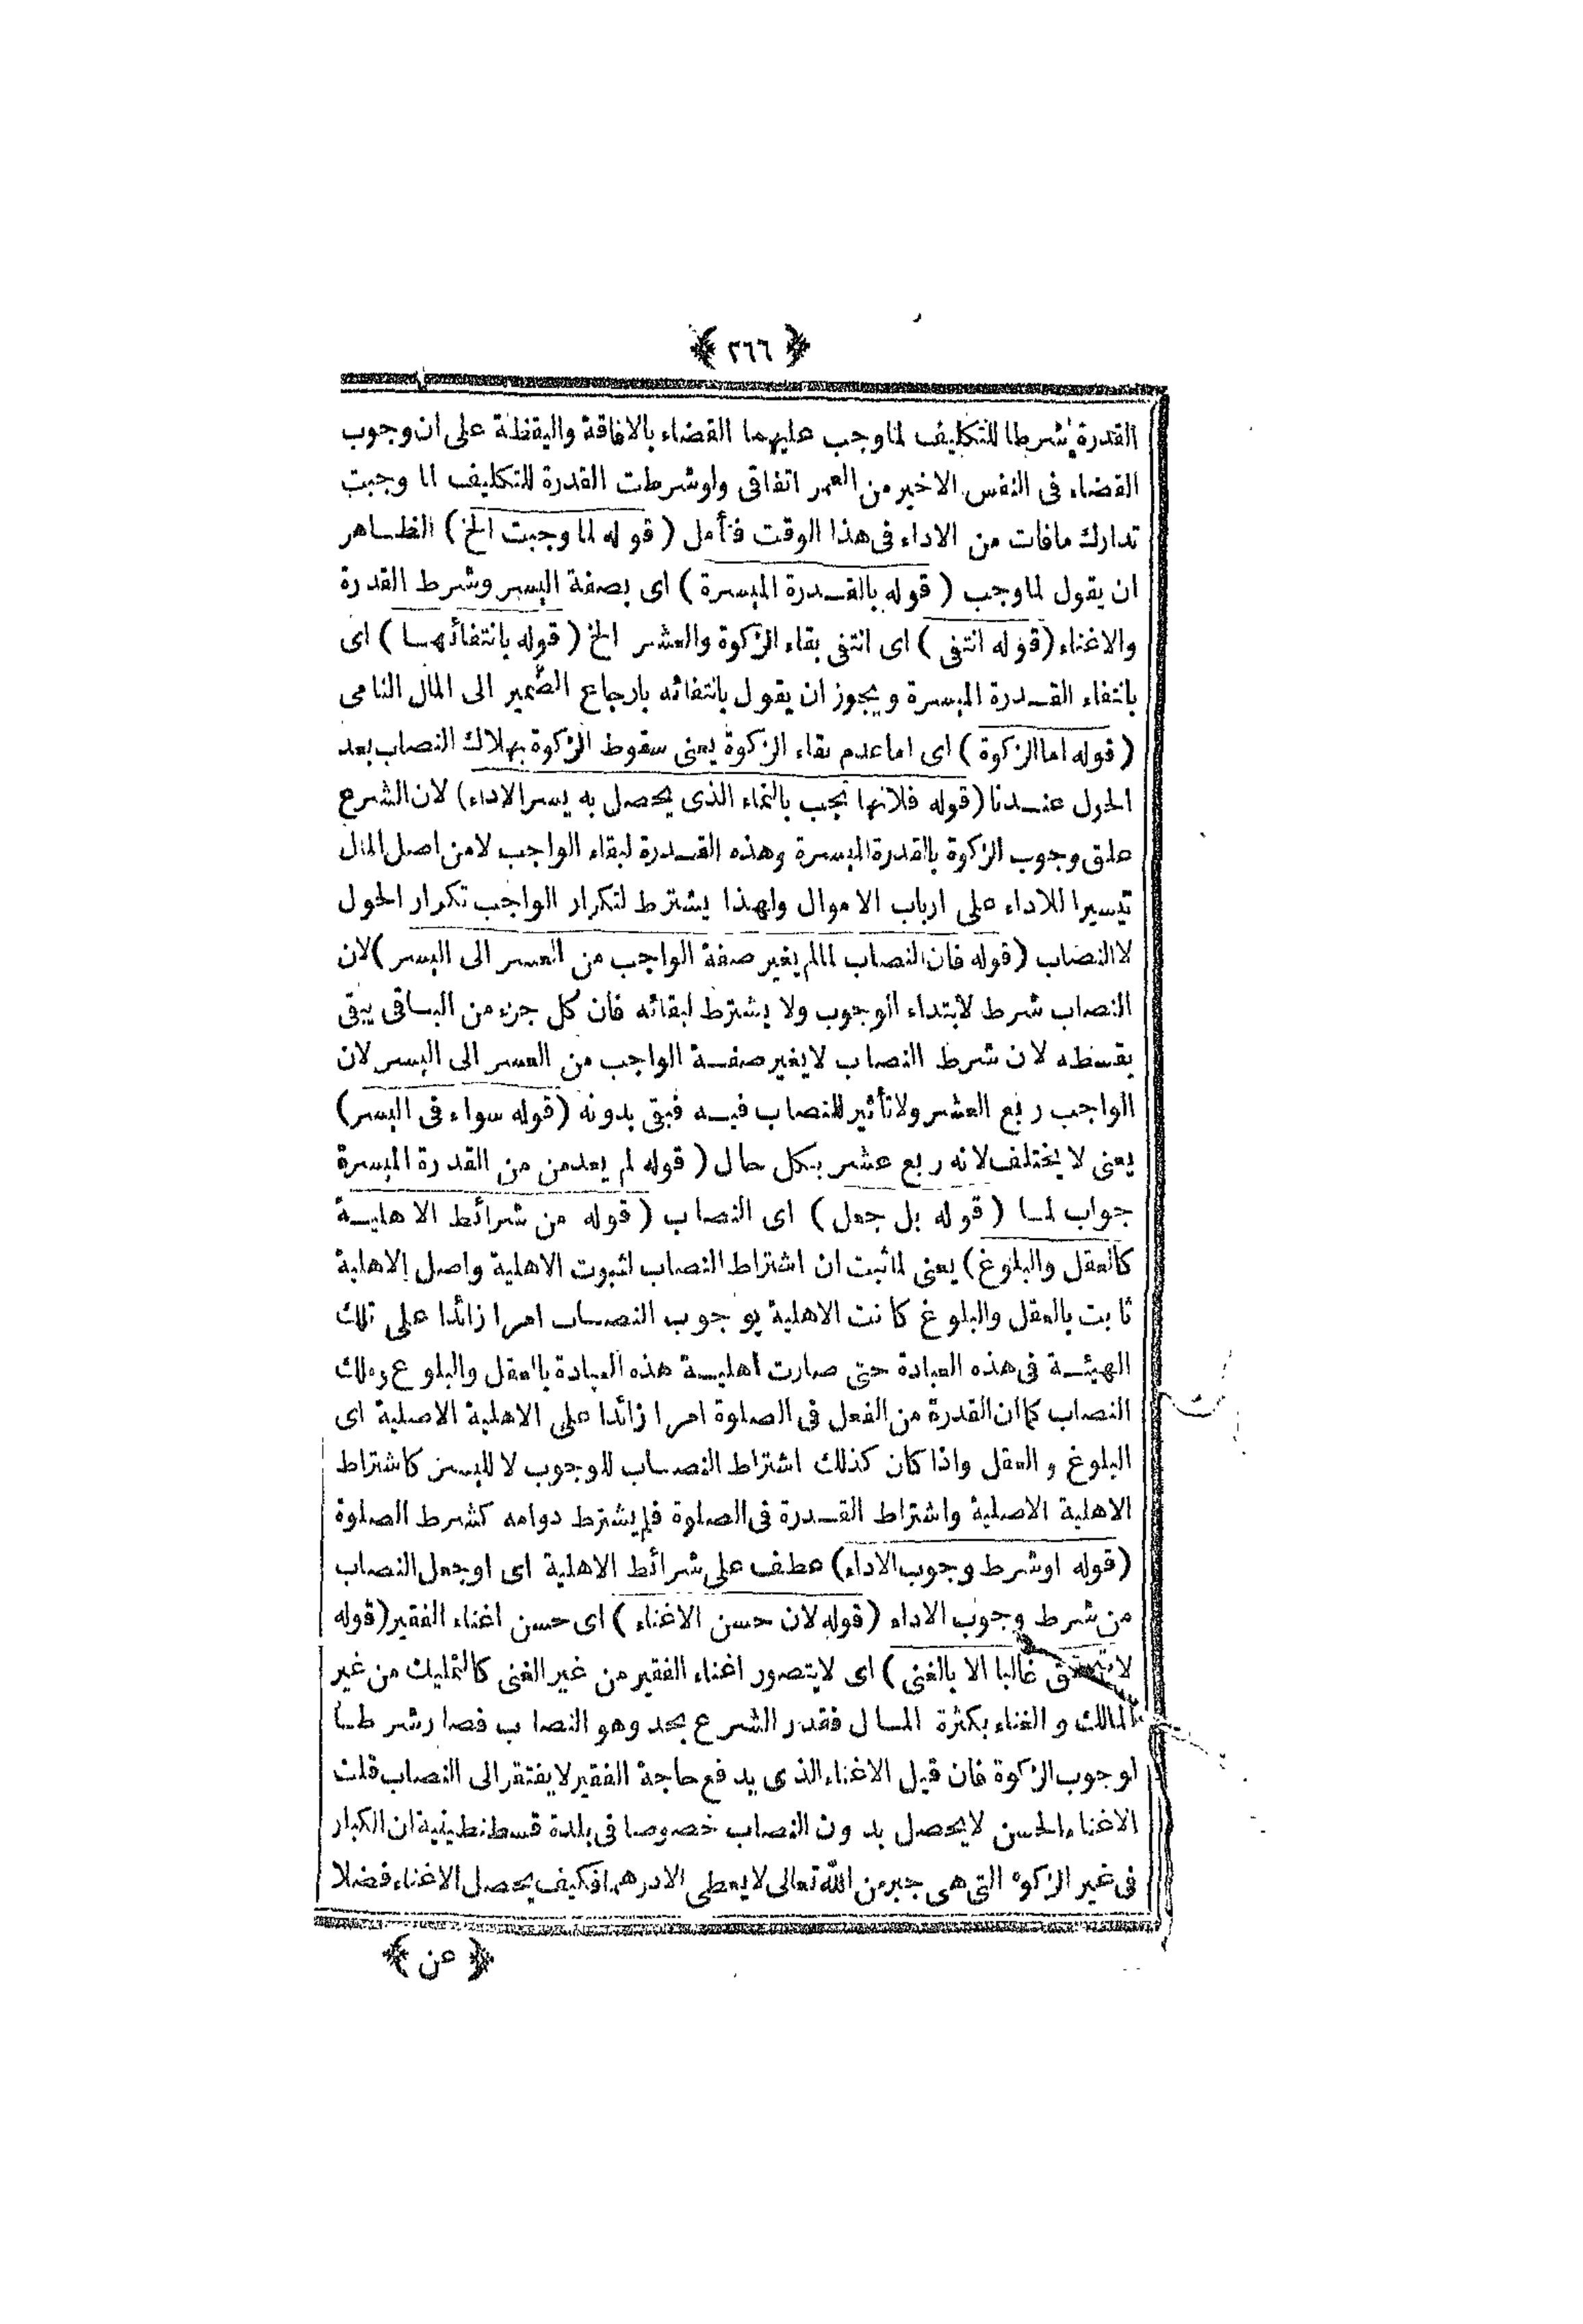 ﴿ ٢٦٦ ﴾
القدرة شرطا للتكليف لما وجب عليهما القضاء بالافاقة واليقظة على ان وجوب
القضاء فى النفس الاخير من العمر اتفاقى ولو شرطت القدرة للتكليف لما وجبت
تدارك مافات من الاداء فى هذا الوقت فتأمل ( قوله لما وجبت الخ ) الظاهر
ان يقول لما وجب ( قوله بالقدرة الميسرة ) اى بصفة اليسر وشرط القدرة
والاغناء ( قوله انتفى ) اى انتفى بقاء الزكوة والعشر الخ ( قوله بانتفائها ) اى
بانتفاء القدرة الميسرة ويجوز ان يقول بانتفائه بارجاع الضمير الى المال النامى
( قوله اما الزكوة ) اى اما عدم بقاء الزكوة يعنى سقوط الزكوة بهلاك النصاب بعد
الحول عندنا ( قوله فلانها تجب بالنماء الذى يحصل به يسر الاداء ) لان الشرع
علق وجوب الزكوة بالقدرة الميسرة وهذه القدرة لبقاء الواجب لامن اصل المال
تيسيرا للاداء على ارباب الاموال ولهذا يشترط لتكرار الواجب تكرار الحول
لا النصاب ( قوله فان النصاب لما لم يغير صفة الواجب من العسر الى اليسر ) لان
النصاب شرط لابتداء الوجوب ولا يشترط لبقائه فان كل جزء من الباقى يبقى
بقسطه لان شرط النصاب لا يغير صفة الواجب من العسر الى اليسر لان
الواجب ربع العشر ولا تأثير للنصاب فيه فبقى بدونه ( قوله سواء فى اليسر )
يعنى لا يختلف لانه ربع عشر بكل حال ( قوله لم يعدمن من القدرة الميسرة
جواب لما ( قوله بل جعل ) اى النصاب ( قوله من شرائط الاهلية
كالعقل والبلوغ ) يعنى لما ثبت ان اشتراط النصاب لثبوت الاهلية واصل الاهلية
ثابت بالعقل والبلوغ كانت الاهلية بوجوب النصاب امرا زائدا على تلك
الهيئة فى هذه العبادة حتى صارت اهلية هذه العبادة بالعقل والبلوغ وملك
النصاب كما ان القدرة من الفعل فى الصلوة امرا زائدا على الاهلية الاصلية اى
البلوغ والعقل واذا كان كذلك اشتراط النصاب للوجوب لا لليسر كاشتراط
الاهلية الاصلية واشتراط القدرة فى الصلوة فلم يشترط دوامه كشرط الصلوة
( قوله او شرط وجوب الاداء ) عطف على شرائط الاهلية اى او جعل النصاب
من شرط وجوب الاداء ( قوله لان حسن الاغناء ) اى حسن اغناء الفقير ( قوله
لا يتحقق غالبا الا بالغنى ) اى لا يتصور اغناء الفقير من غير الغنى كالتمليك من غير
المالك والغناء بكثرة المال فقدر الشرع بحد وهو النصاب فصار شرطا
لوجوب الزكوة فان قيل الاغناء الذى يدفع حاجة الفقير لا يفتقر الى النصاب قلت
الاغناء الحسن لا يحصل بدون النصاب خصوصا فى بلدة قسطنطينية ان الكبار
فى غير الزكوة التى هى جبر من الله تعالى لا يعطى الا درهما فكيف يحصل الاغناء فضلا
﴿ عن ﴾